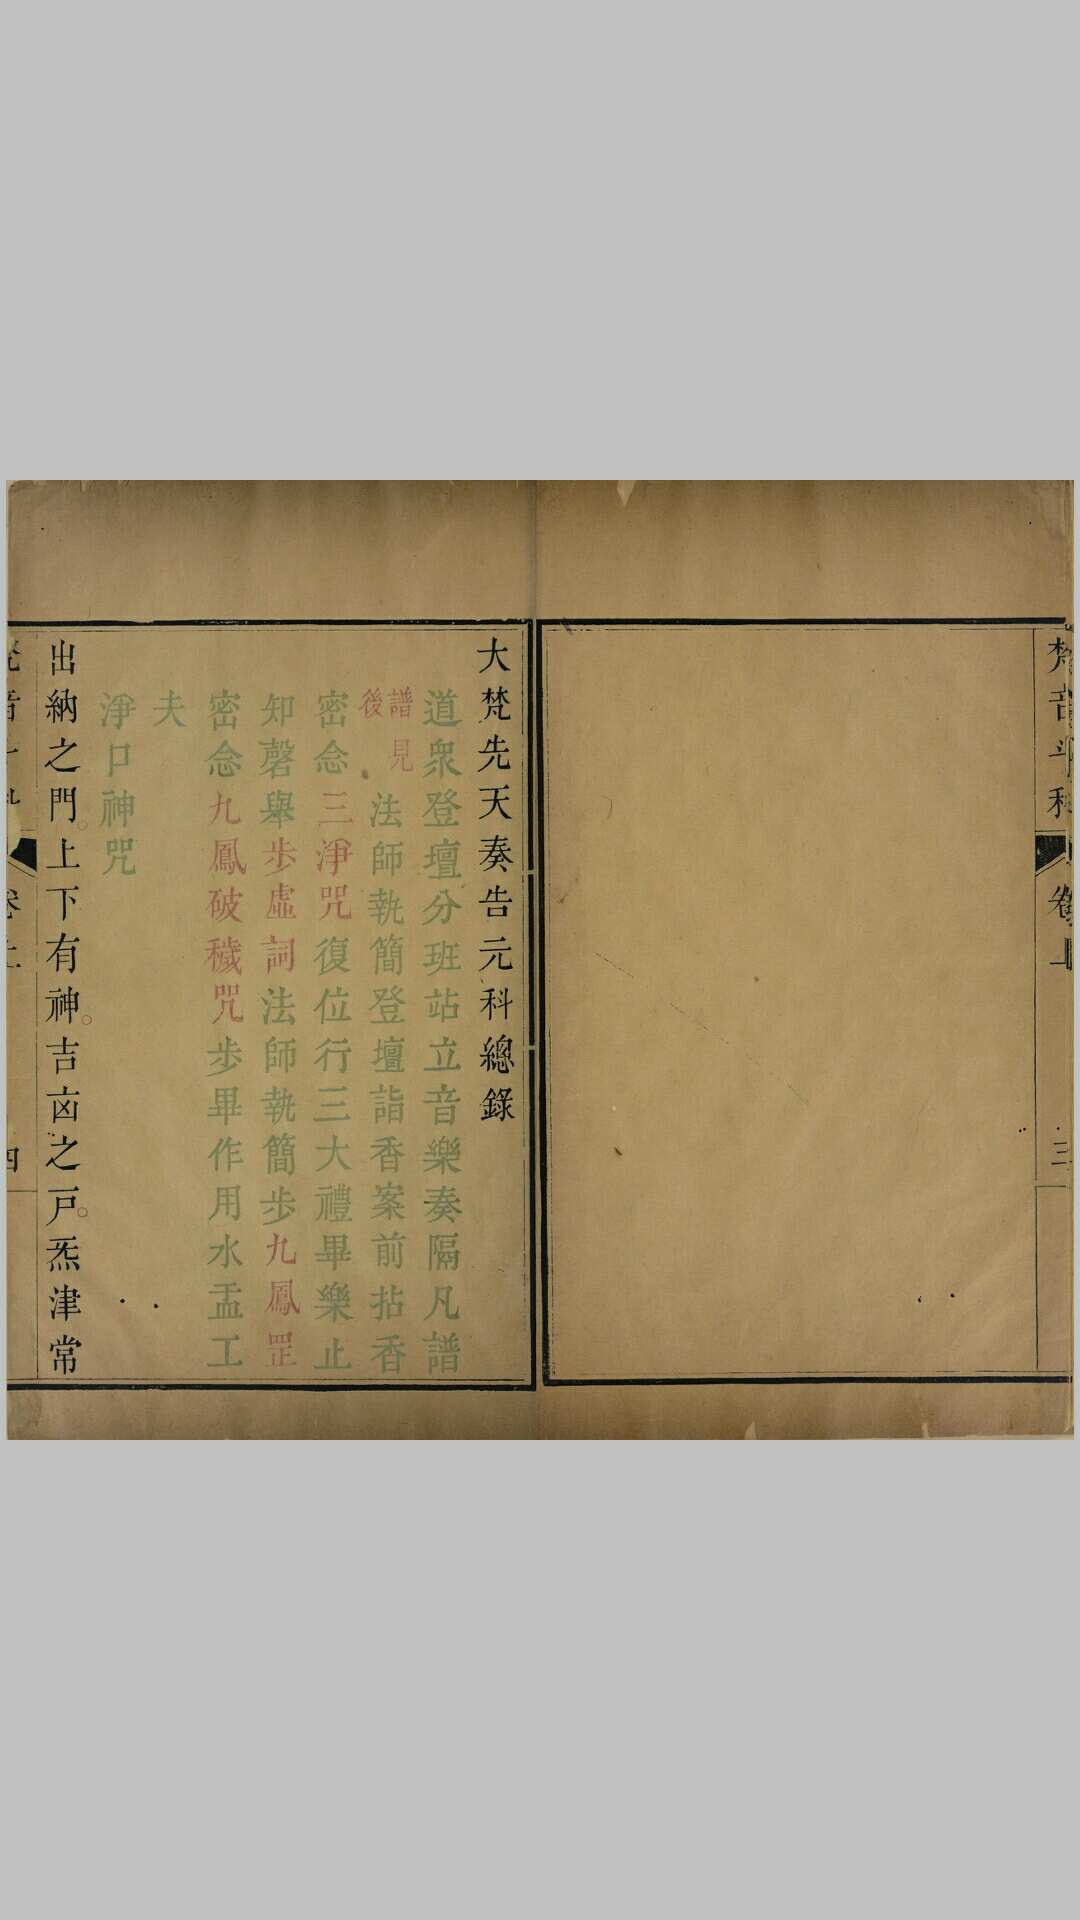 梵音斗科
卷上
三
大梵先天奏告元科總錄
道眾登壇分班站立音樂奏隔凡譜
譜見
後
法師執簡登壇詣香案前拈香
密念三淨咒復位行三大禮畢樂止
知磬舉步虛詞法師執簡步九鳳罡
密念九鳳破穢咒步畢作用水盂工
夫
淨口神咒
出納之門。上下有神。吉凶之戶。炁津常